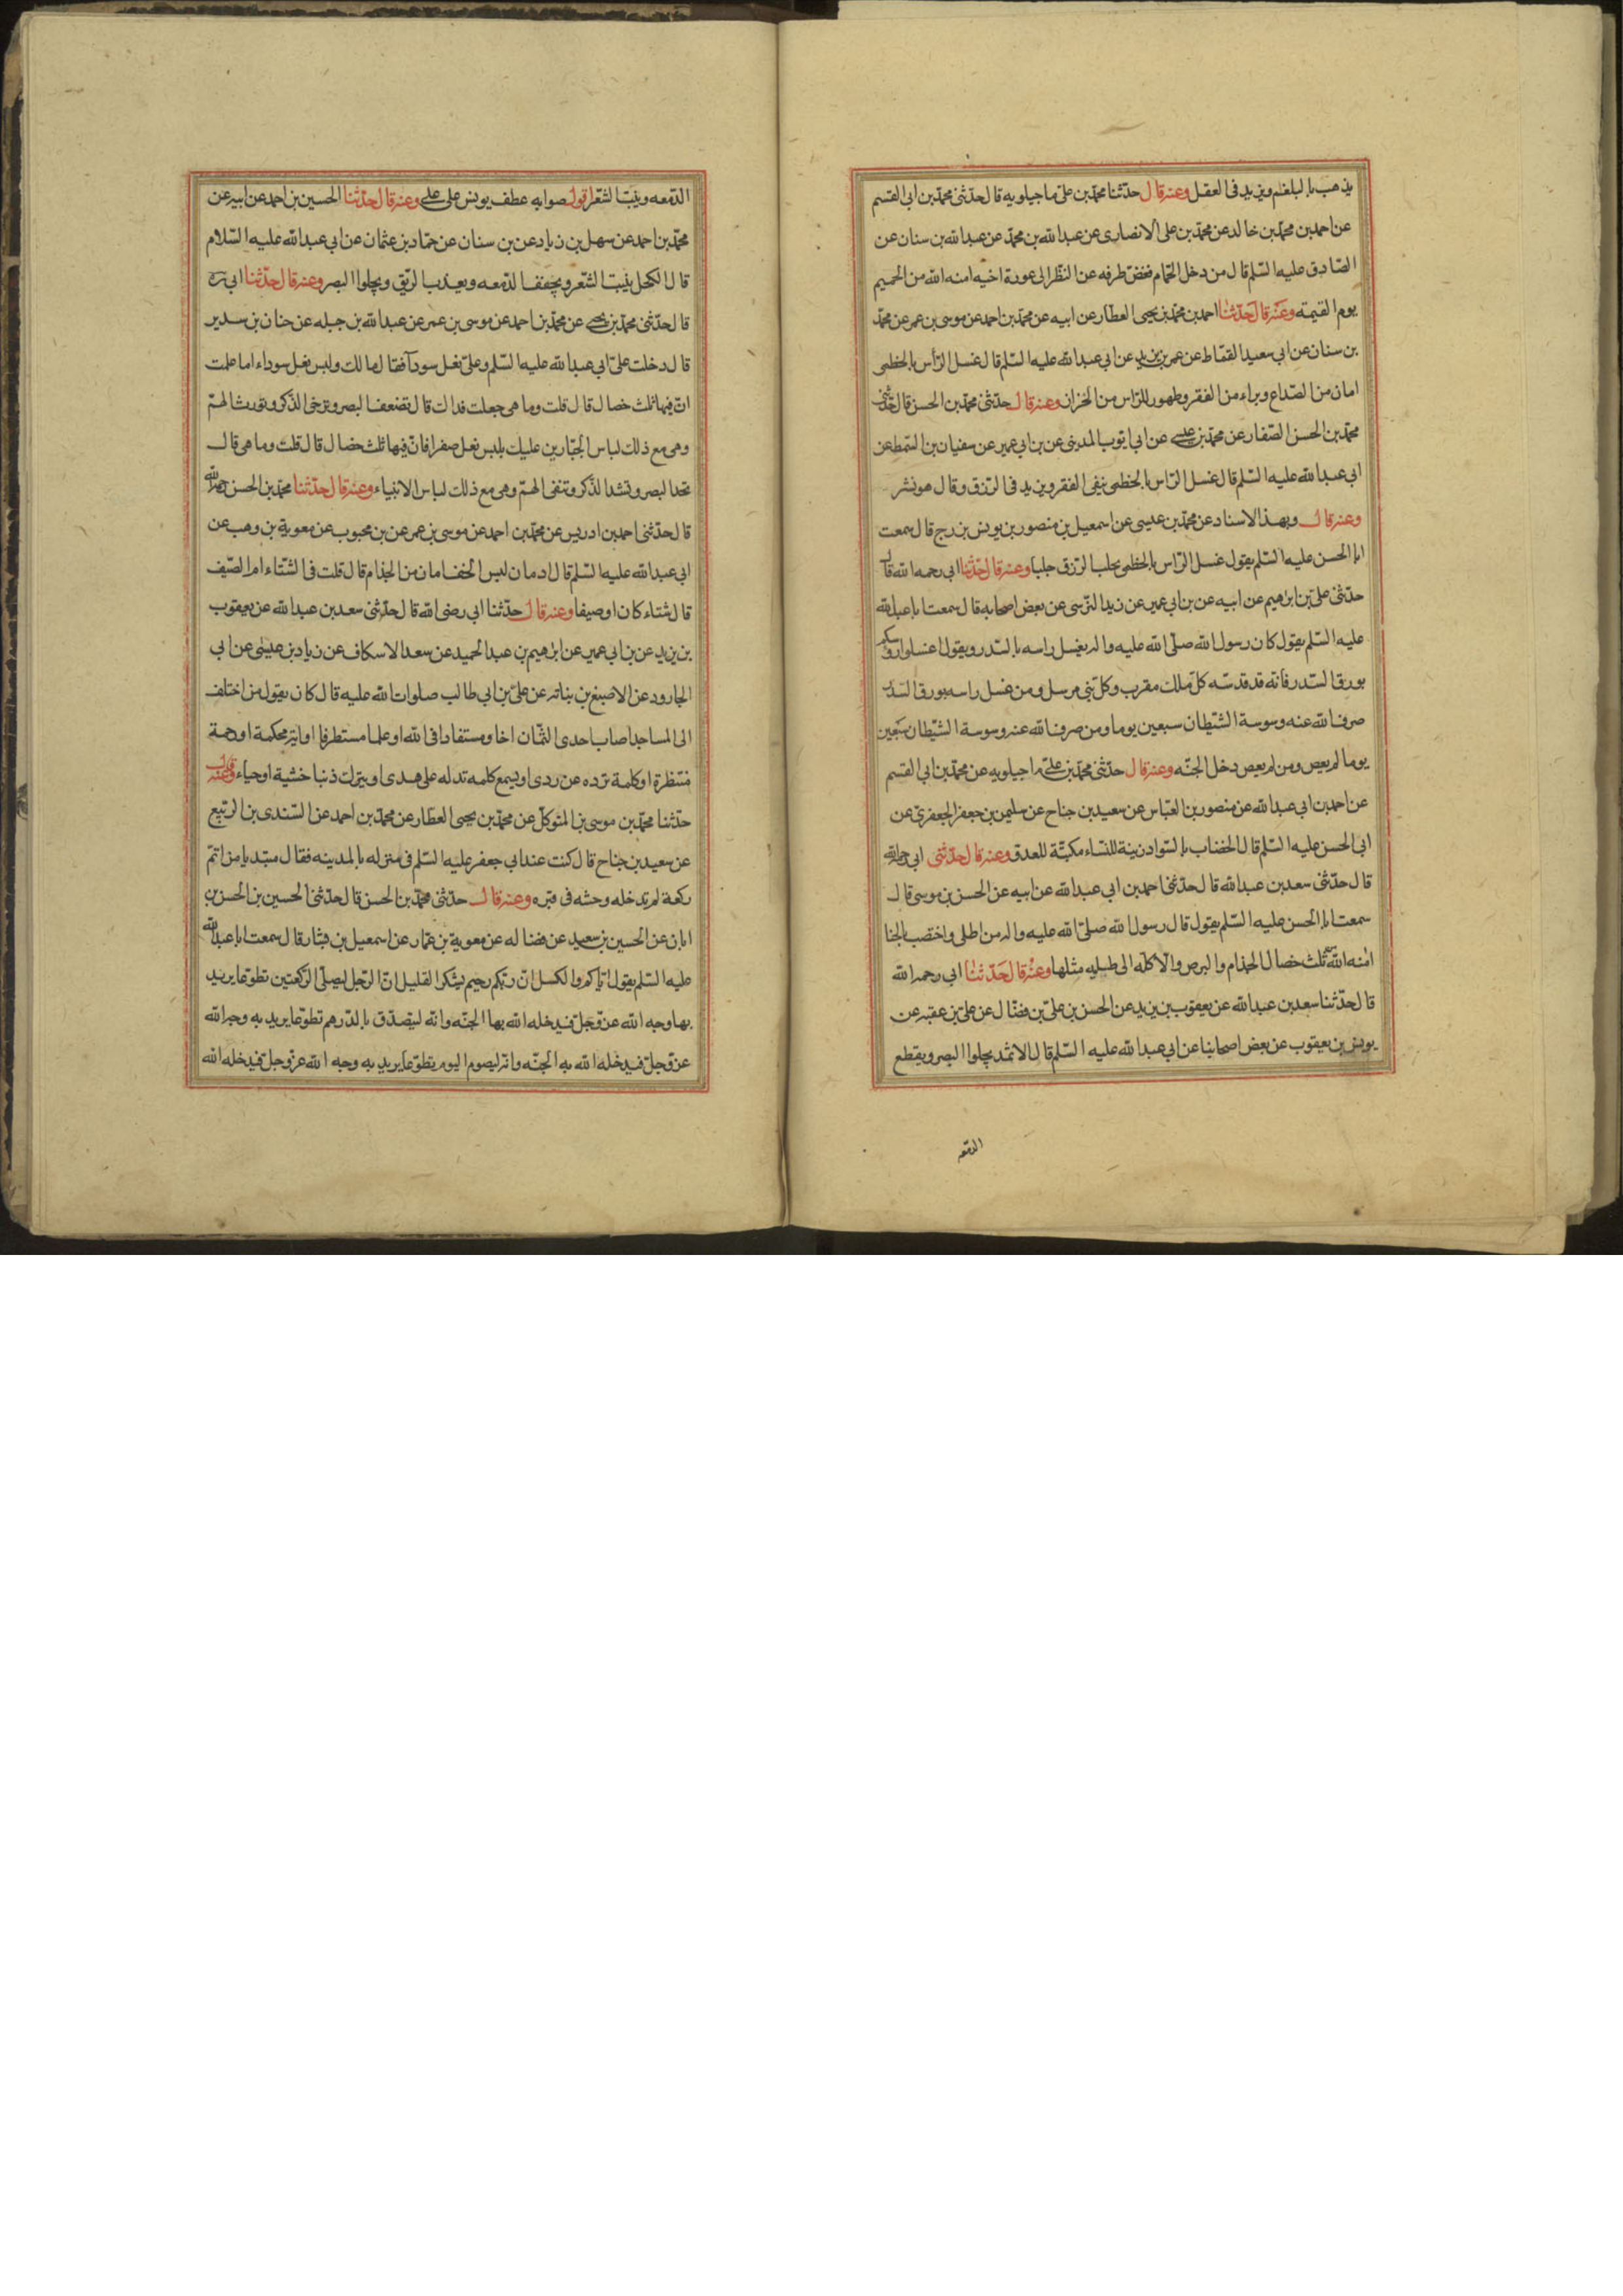 يذهب بالبلغم ويزيد فى العقل وعنه قال حدّثنا محمّد بن علىّ ماجيلويه قال حدّثنى محمّد بن ابى القسم
عن احمد بن محمّد بن خالد عن محمّد بن على الانصارى عن عبد الله بن محمّد عن عبد الله بن سنان عن
الصّادق عليه السّلم قال من دخل الحمّام فغضّ طرفه عن النّظر الى عورة اخيه امنه الله من الحميم
يوم القيمة وعنه قال حدّثنا احمد بن محمّد بن يحيى العطّار عن ابيه عن محمّد بن احمد عن موسى بن عمر عن محمّد
بن سنان عن ابى سعيد القمّاط عن عمر بن يزيد عن ابى عبد الله عليه السّلم قال غسل الرّأس بالخطمى
امان من الصّداع وبراءه من الفقر وطهور للرّاس من الحزاز وعنه قال حدّثنى محمّد بن الحسن قال حدّثنى
محمّد بن الحسن الصّفار عن محمّد بن عيسى عن ابى ايّوب المدينى عن بن ابى عمير عن سفيان بن السّمط عن
ابى عبد الله عليه السّلم قال غسل الرّاس بالخطمى ينفى الفقر ويزيد فى الرّزق وقال هو نشر
وعنه قال وبهذا الاسناد عن محمّد بن عيسى عن اسمعيل بن منصور بن يونس بن بزرج قال سمعت
ابا الحسن عليه السّلم يقول غسل الرّاس بالخطمى يجلب الرّزق جلبا وعنه قال حدّثنا ابى رحمه الله قال
حدّثنى علىّ بن ابرهيم عن ابيه عن بن ابى عمير عن زيد النرسى عن بعض اصحابه قال سمعت ابا عبد الله
عليه السّلم يقول كان رسول الله صلّى الله عليه واله يغسل راسه بالسّدر ويقول اغسلوا روسكم
بورق السّدر فأنه قد قدسّه كلّ ملك مقرب وكلّ نبى مرسل ومن غسل راسه بورق السّدر
صرف الله عنه وسوسة الشّيطان سبعين يوما ومن صرف الله عنه وسوسة الشّيطان سبعين
يوما لم يعص ومن لم يعص دخل الجنّه وعنه قال حدّثنى محمّد بن علىّ ماجيلويه عن محمّد بن ابى القسم
عن احمد بن ابى عبد الله عن منصور بن العبّاس عن سعيد بن جناح عن سليمن بن جعفر الجعفرى عن
ابى الحسن عليه السّلم قال الخضاب بالسّواد زينة للنّساء مكبتة للعدو وعنه قال حدّثنى ابى رحمه الله
قال حدّثنى سعد بن عبد الله قال حدّثنى احمد بن ابى عبد الله عن ابيه عن الحسن بن موسى قال
سمعت ابا الحسن عليه السّلم يقول قال رسول الله صلّى الله عليه واله من اطلى واختضب بالحنا
امنه الله ثلث خصال الجذام والبرص والآكله الى طليه مثلها وعنه قال حدّثنا ابى رحمه الله
قال حدّثنا سعد بن عبد الله عن يعقوب بن يزيد عن الحسن بن علىّ بن فضّال عن علىّ بن عقبه عن
يونس بن يعقوب عن بعض اصحابنا عن ابى عبد الله عليه السّلم قال الاثمد يجلوا البصر ويقطع
الدّمعه
الدّمعه وينبت الشّعر اقول صوابه عطف يونس على على وعنه قال حدّثنا الحسين بن احمد عن ابيه عن
محمّد بن احمد عن سهل بن زياد عن بن سنان عن حمّاد بن عثمان عن ابى عبد الله عليه السّلام
قال الكحل ينبت الشّعر ويجفف الدّمعه ويعذب الرّيق ويجلوا البصر وعنه قال حدّثنا ابى ره
قال حدّثنى محمّد بن يحيى عن محمّد بن احمد عن موسى بن عمر عن عبد الله بن جبله عن حنان بن سدير
قال دخلت على ابى عبد الله عليه السّلم وعلىّ نعل سودآ فقال مالك ولبس نعل سوداء اما علمت
انّ فيها ثلث خصال قال قلت وما هى جعلت فداك قال تضعف البصر وترخى الذّكر وتورث الهمّ
وهى مع ذلك لباس الجبّارين عليك بلبس نعل صفرا فانّ فيها ثلث خصال قال قلت وما هى قال
تحد البصر وتشد الذّكر وتنفى الهمّ وهى مع ذلك لباس الانبياء وعنه قال حدّثنا محمّد بن الحسن رحمه الله
قال حدّثنى احمد بن ادريس عن محمّد بن احمد عن موسى بن عمر عن بن محبوب عن معوية بن وهب عن
ابى عبد الله عليه السّلم قال ادمان لبس الخف امان من الجذام قال قلت فى الشّتاء ام الصّيف
قال شتاء كان او صيفا وعنه قال حدّثنا ابى رضى الله قال حدّثنى سعد بن عبد الله عن يعقوب
بن يزيد عن بن ابى عمير عن ابرهيم بن عبد الحميد عن سعد الاسكاف عن زياد بن عيسى عن ابى
الجارود عن الاصبغ بن بناته عن علىّ بن ابى طالب صلوات الله عليه قال كان يقول من اختلف
الى المساجد اصاب احدى الثمّان اخا ومستفادا فى الله او علما مستطرفا او اية محكمة او رحمة
منتظرة او كلمة تردّه عن ردى او يسمع كلمه تدله على هدى او يترك ذنبا خشية او حياء وعنه قال
حدّثنا محمّد بن موسى بن المتوكّل عن محمّد بن يحيى العطّار عن محمّد بن احمد عن السّندى بن الرّبيع
عن سعيد بن جناح قال كنت عند ابى جعفر عليه السّلم فى منزله بالمدينه فقال مبتديا من اتمّ
ركعة لم تدخله وحشه فى قبره وعنه قال حدّثنى محمّد بن الحسن قال حدّثنى الحسين بن الحسن بن
ابان عن الحسين بن سعيد عن فضاله عن معوية بن عمّار عن اسمعيل بن يشار قال سمعت ابا عبد الله
عليه السّلم يقول ايّاكم والكسل انّ ربّكم رحيم يشكر القليل انّ الرّجل ليصلّى الرّكعتين تطوّعا يريد
بهما وجه الله عزّ وجلّ فيدخله الله بها الجنّه وانّه ليتصدّق بالدّرهم تطوّعا يريد به وجه الله
عزّ وجلّ فيدخله الله به الجنّه وانّه ليصوم اليوم تطوّعا يريد به وجه الله عزّ وجلّ فيدخله الله